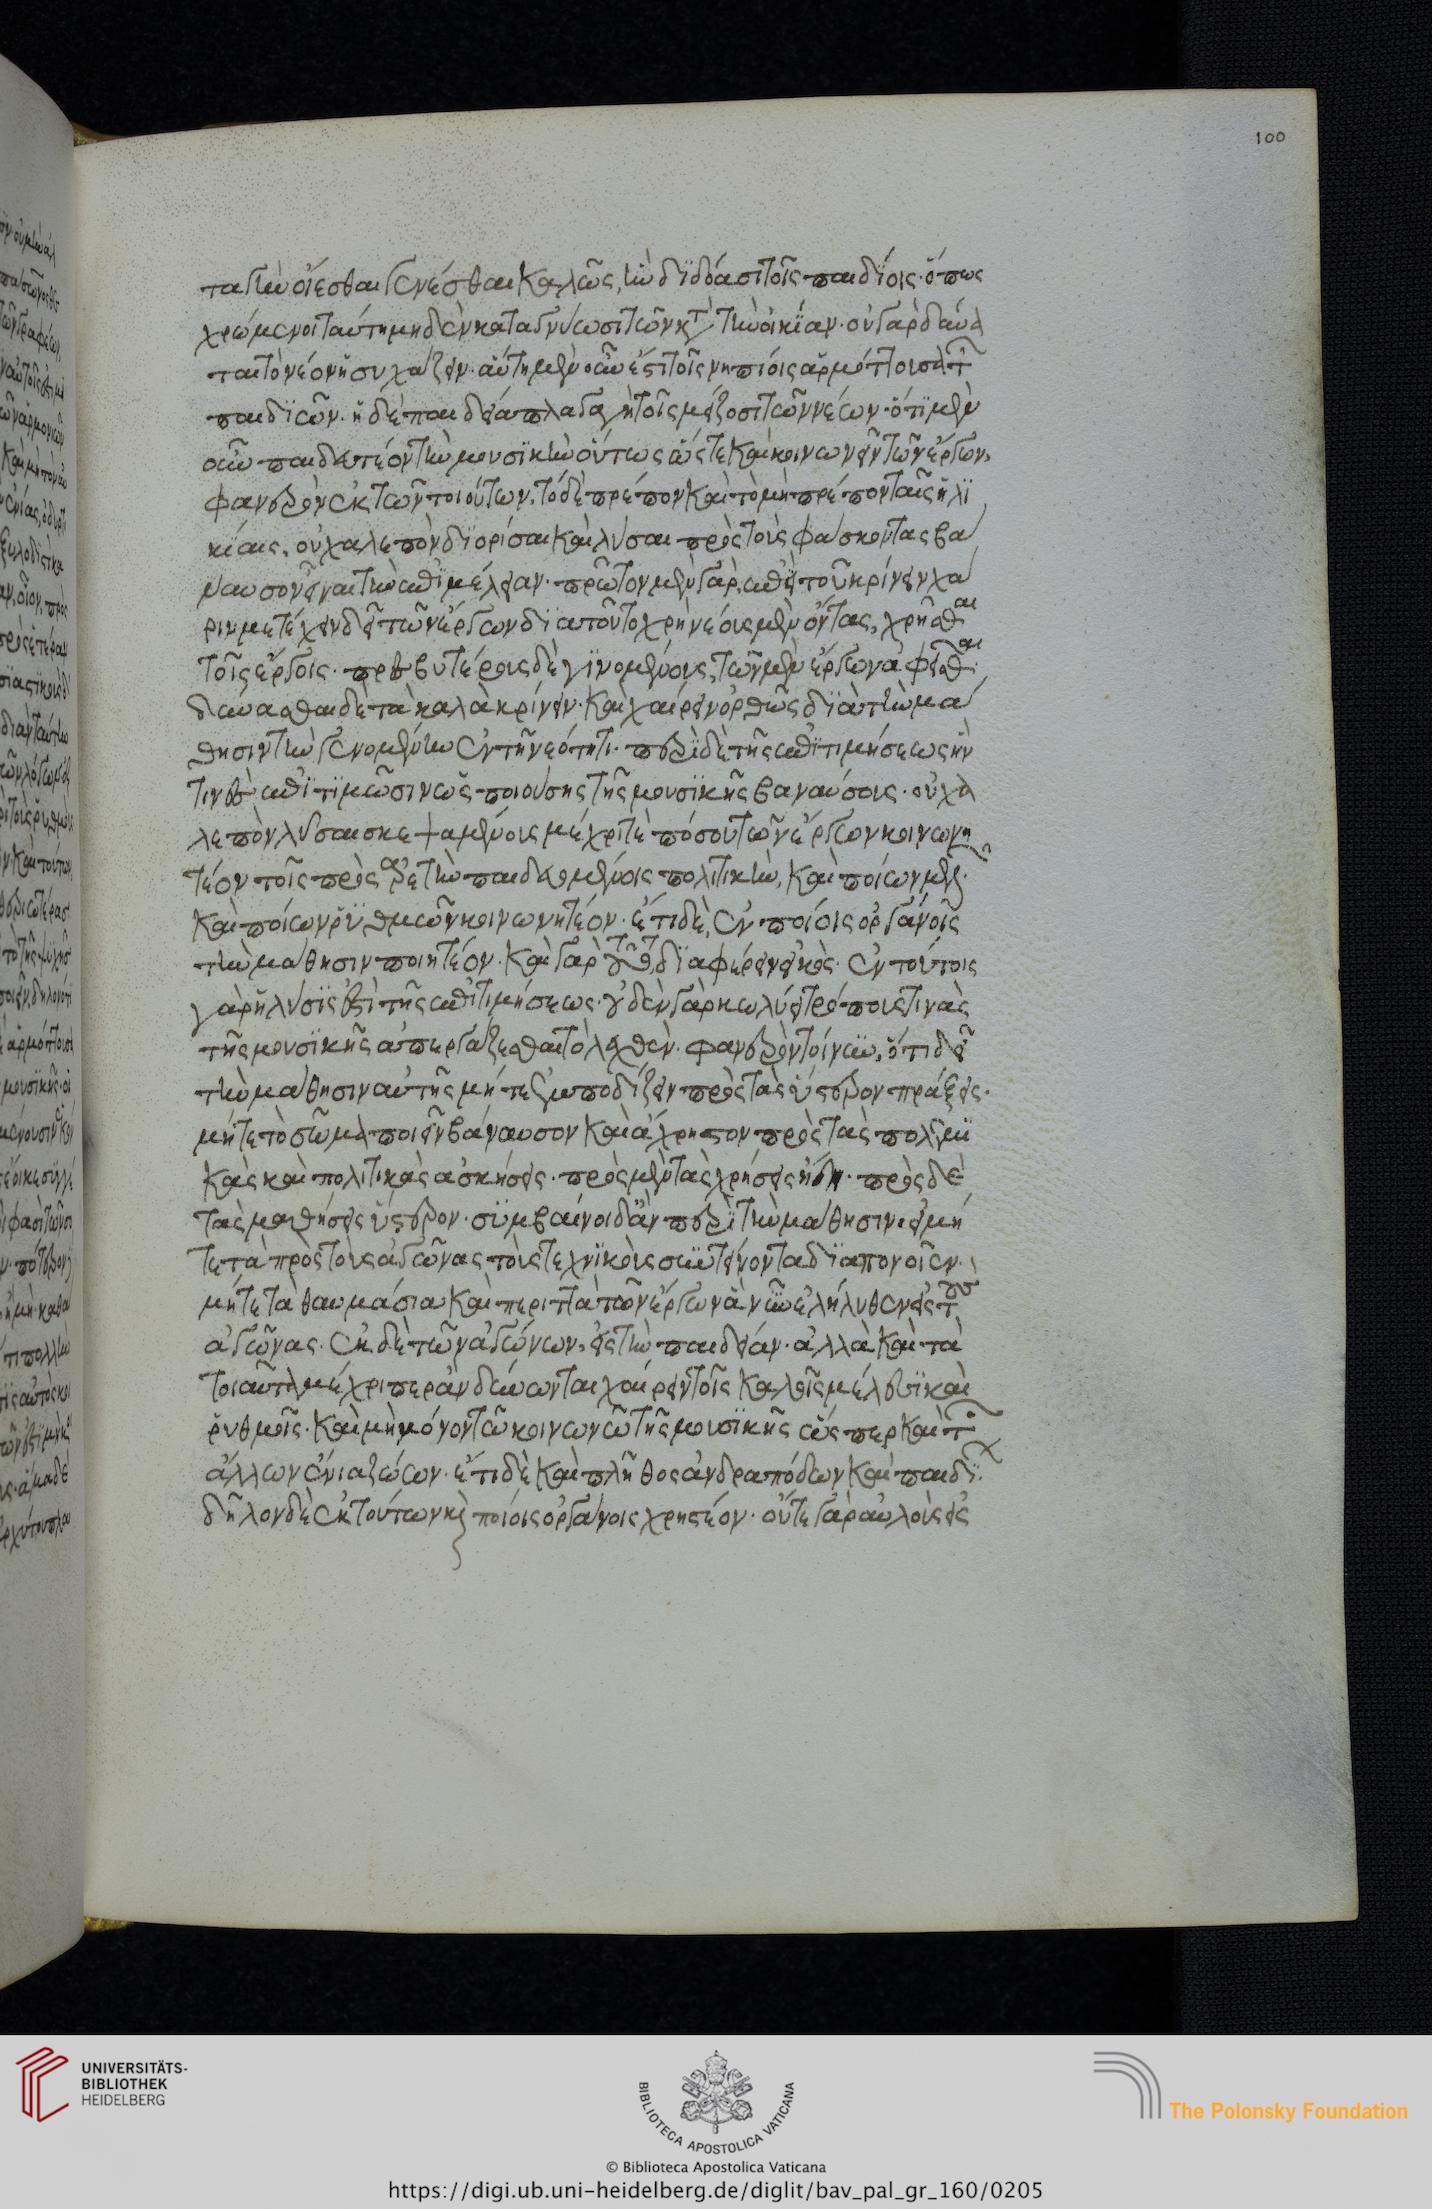 ταγὴν οἴεσθαι γενέσθαι καλῶς, ἣν διδόασι τοῖς παιδίοις· ὅπως
χρώμενοι ταύτη μηδὲν καταγνύωσι τῶν κατὰ τὴν οἰκίαν· οὐ γὰρ δύνα
ται τὸ νέον ἡσυχάζειν· αὕτη μὲν οὖν ἐστὶ τοῖς νηπίοις ἁρμόττουσα τῶν
παιδίων· ἡ δὲ παιδεία πλαταγὴ τοῖς μείζοσι τῶν νέων· ὅτι μὲν
οὖν παιδευτέον τὴν μουσικὴν οὕτως ὥστε καὶ κοινωνεῖν τῶν ἔργων,
φανερὸν ἐκ τῶν τοιούτων. τὸ δὲ πρέπον καὶ τὸ μὴ πρέπον ταῖς ἡλι
κίαις, οὐ χαλεπὸν διορίσαι καὶ λῦσαι πρὸς τοὺς φάσκοντας βά
ναυσον εἶναι τὴν ἐπιμέλειαν· πρῶτον μὲν γὰρ, ἐπεὶ τοῦ κρίνειν χά
ριν μετέχειν δεῖ τῶν ἔργων διὰ τοῦτο χρὴ νέους μὲν ὄντας, χρῆσθαι
τοῖς ἔργοις· πρεσβυτέρους δὲ γινομένους, τῶν μὲν ἔργων ἀφεῖσθαι·
δύνασθαι δὲ τὰ καλὰ κρίνειν· καὶ χαίρειν ὀρθῶς διὰ τὴν μά
θησιν τὴν γενομένην ἐν τῇ νεότητι· περὶ δὲ τῆς ἐπιτιμήσεως ἥν
τινες ἐπιτιμῶσιν ὡς ποιούσης τῆς μουσικῆς βαναύσους· οὐ χα
λεπὸν λῦσαι σκεψαμένοις μέχρι τὲ πόσου τῶν ἔργων κοινωνη
τέον τοῖς πρὸς ἀρετὴν παιδευομένοις πολιτικὴν, καὶ ποίων μελῶν·
καὶ ποίων ῥυθμῶν κοινωνητέον· ἔτι δὲ, ἐν ποίοις ὀργάνοις
τὴν μάθησιν ποιητέον· καὶ γὰρ τοῦτο διαφέρειν εἰκὸς· ἐν τούτοις
γὰρ ἡ λύσις ἐστὶ τῆς ἐπιτιμήσεως· οὐδὲν γὰρ κωλύει τρόπους τινὰς
τῆς μουσικῆς ἀπεργάζεσθαι τὸ λεχθὲν· φανερὸν τοίνυν, ὅτι δεῖ
τὴν μάθησιν αὐτῆς μήτε ἐμποδίζειν πρὸς τὰς ὕστερον πράξεις·
μήτε τὸ σῶμα ποιεῖν βάναυσον καὶ ἄχρηστον πρὸς τὰς πολεμι
κὰς καὶ πολιτικὰς ἀσκήσεις· πρὸς μὲν τὰς χρήσεις ἤδη· πρὸς δὲ
τὰς μαθήσεις ὕστερον· συμβαίνοι δ' ἂν περὶ τὴν μάθησιν· εἰ μή
τε τὰ πρὸς τοὺς ἀγῶνας τοὺς τεχνικοὺς συντείνοντα διαπονοῖεν·
μήτε τὰ θαυμάσια καὶ περιττὰ τῶν ἔργων ἃ νῦν ἐλήλυθεν εἰς τοὺς
ἀγῶνας· ἐκ δὲ τῶν ἀγώνων, εἰς τὴν παιδείαν· ἀλλὰ καὶ τὰ
τοιαῦτα μέχρι περ ἂν δύνωνται χαίρειν τοῖς καλοῖς μέλεσι καὶ
ῥυθμοῖς· καὶ μὴ μόνον τῷ κοινωνῷ τῆς μουσικῆς ὥσπερ καὶ τῶν
ἄλλων ἔνια ζώων· ἔτι δὲ καὶ πλῆθος ἀνδραπόδων καὶ παιδίων·
δῆλον δὲ ἐκ τούτων καὶ ποίοις ὀργάνοις χρηστέον· οὔτε γὰρ αὐλοὺς εἰς
100
UNIVERSITÄTS-
BIBLIOTHEK
HEIDELBERG
BIBLIOTECA APOSTOLICA VATICANA
The Polonsky Foundation
© Biblioteca Apostolica Vaticana
https://digi.ub.uni-heidelberg.de/diglit/bav_pal_gr_160/0205